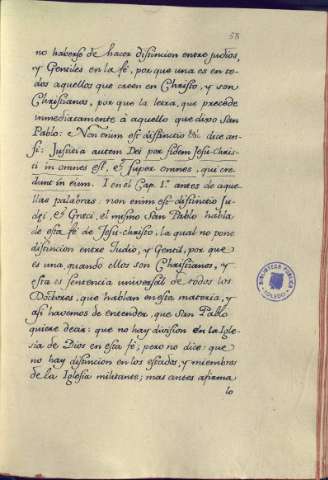 58
no haberse de hacer disti͂ncion entre judios,
y Gentiles en la fé, por que una es en to-
dos aquellos que creen en Christo, y son
Christianos, por que la letra, que precede
inmediatamente à aquello que dixo San
Pablo: Non enim est distinctio dice an-
si: Justitia autem Dei per fidem Jesu-Chris-
ti in omnes est, et super omnes, qui cre-
dunt in eum. I en el Cap. 1º antes de aque-
llas palabras: non enim est distinctio Ju-
dei, et Greci, el mismo San Pablo habla
de esta fé de Jesu-christo, la qual no pone
distincion entre Judio, y Gentil, por que
es una, quando ellos son Christianos, y
esta es sentencia universal de todos los
Doctores, que hablan en esta materia, y
asi havemos de entender, que San Pablo
quiere decir: que no hay division en la Igle-
sia de Dios en esta fé; pero no dice: que
no hay distincion en los estados, y miembros
de la Iglesia militante; mas antes afirma
lo
BIBLIOTECA PUBLICA
TOLEDO